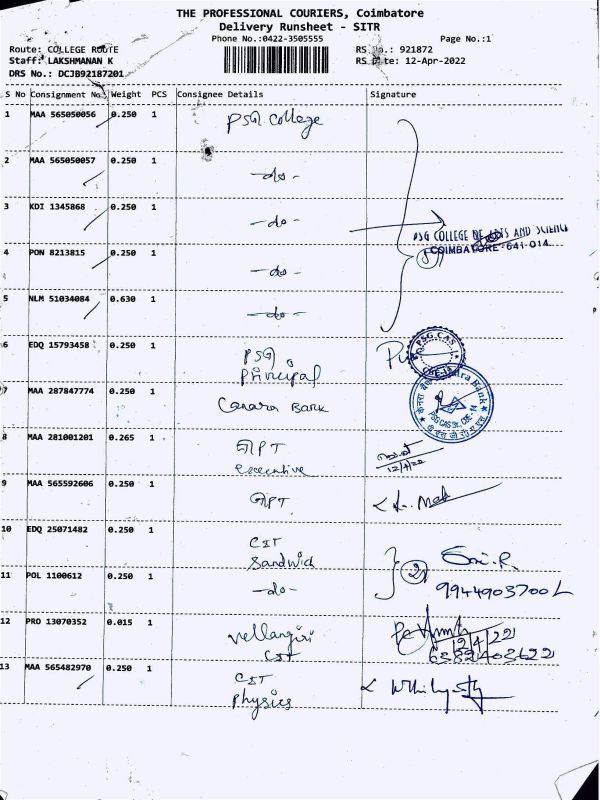 THE PROFESSIONAL COURIERS, Coimbatore
Delivery Runsheet - SITR
Phone No.:0422-3505555
Page No.:1
Route: COLLEGE ROUTE
RS No.: 921872
Staff: LAKSHMANAN K
RS Date: 12-Apr-2022
DRS No.: DCJB92187201
S No Consignment No. Weight PCS Consignee Details Signature
1 MAA 565050056 0.250 1 PSG College
2 MAA 565050057 0.250 1 -do-
3 KDI 1345868 0.250 1 -do-
PSG COLLEGE OF ARTS AND SCIENCE
COIMBATORE-641-014
4 PON 8213815 0.250 1 -do-
5 NLM 51034084 0.630 1 -do-
6 EDQ 15793458 0.250 1 PSG
Principal
PSG CAS
7 MAA 287847774 0.250 1 Canara BANK
Canara Bank
8 MAA 281001201 0.265 1 GPT
executive
12/4/22
9 MAA 565592606 0.250 1 GPT
10 EDQ 25071482 0.250 1 CIT
Sandwich
11 POL 1100612 0.250 1 -do-
2
12 PRO 13070352 0.015 1 Vellangiri
CIT
13 MAA 565482970 0.250 1 CIT
Physics